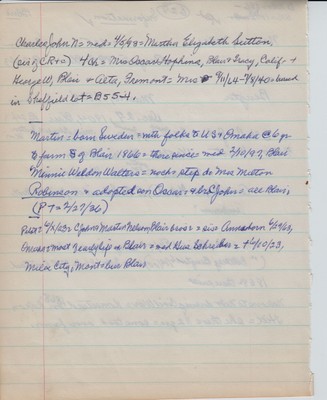 Charles John N = med = 4/5/93 = Martha Elizabeth Sutton,
(sis of CR+O) 4 Ch = Mrs Oscar Hopkins, Blair + Lucy, Calif. +
George W, Blair + Aeta, Fremont = Mrs 9/11/64 - 7/8/40 = buried
in Sheffield Lot = B 55-4.
Martin = born Sweden = with folks to US + Omaha @ 6 yr
to farm S of Blair 1866 = there since = med 2/10/97, Blair
Minnie Weldon Walters = no ch = step da Mrs Matton
Robinson + adopted son Oscar = + b C John = all Blair,
(PT = 2/27/36)
4/5/23 = C John + Martin Nelson Blair bros = sis Anna born
Omaha = most early life in Blair = med = + 4/10/23,
Miles City, Mont = bur Blair